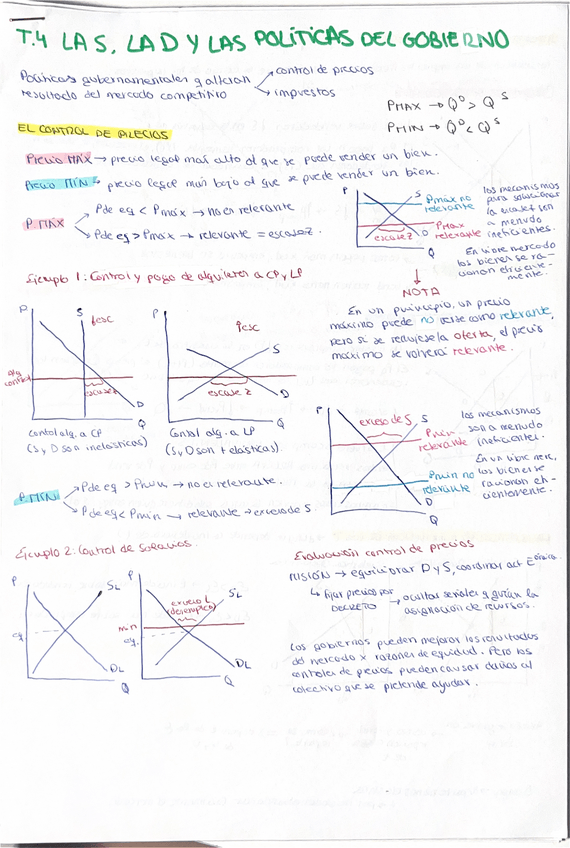 T.4 LA S, LA D Y LAS POLÍTICAS DEL GOBIERNO
Políticas gubernamentales q alteran
resultado del mercado competitivo
control de precios
impuestos
PMAX → Q^D > Q^S
PMIN → Q^D < Q^S
EL CONTROL DE PRECIOS
Precio MÁX → precio legal más alto al que se puede vender un bien.
Precio MÍN → precio legal más bajo al que se puede vender un bien.
P. MÁX
P de eq < Pmáx → no es relevante
P de eq > Pmáx → relevante = escasez.
P
S
Pmax no
relevante
Pmax
relevante
escasez
D
Q
los mecanismos
para solucionar
la escasez son
a menudo
ineficientes.
En libre mercado
los bienes se ra-
cionan eficiente-
mente.
NOTA
En un principio, un precio
máximo puede no verse como relevante,
pero si se redujese la oferta, el precio
máximo se volverá relevante.
Ejemplo 1: Control y pago de alquileres a CP y LP
P
S
↑esc
alq
control
escasez
D
Q
Control alq. a CP
(S y D son inelásticas)
P
↑esc
S
escasez
D
Q
Control alq. a LP
(S y D son + elásticas).
P
exceso de S
S
Pmin
relevante
Pmin no
relevante
D
Q
los mecanismos
son a menudo
ineficientes.
En un libre merc,
los bienes se
racionan efi-
cientemente.
P. MÍN
P de eq > Pmin → no es relevante.
P de eq < Pmin → relevante → exceso de S
Ejemplo 2: Control de salarios.
P
SL
eq.
DL
Q
P
exceso L
(desempleo)
SL
min
eq.
DL
Q
Evaluación control de precios
MISIÓN → equilibrar D y S, coordinar act E
↳ fijar precios por
DECRETO → ocultas señales q guían la
asignación de recursos.
Los gobiernos pueden mejorar los resultados
del mercado x razones de equidad. Pero los
controles de precios pueden causar daños al
colectivo que se pretende ayudar.